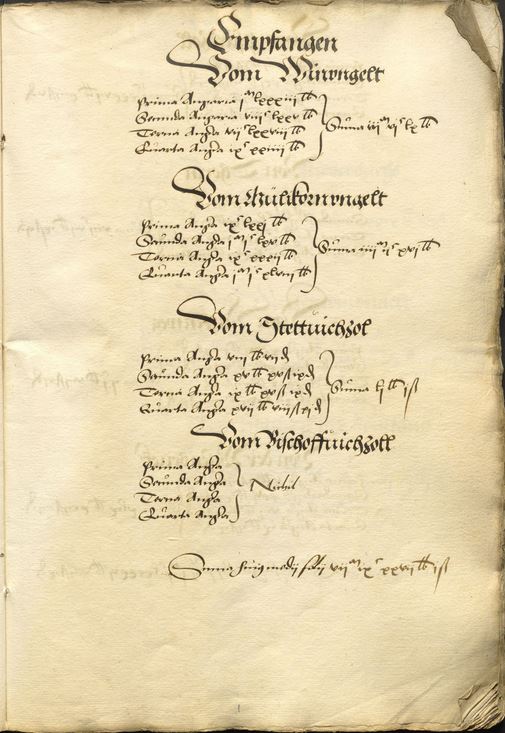 Empfangen
Vom Winungelt
Prima Angaria jᵐ lxxxiii lb
Secunda Angaria viijᶜ lxxv lb
Tercia Anga vijᶜ lxxviii lb
Quarta Anga ixᶜ xxiiii lb
Suma iijᵐ vjᶜ lx lb
Vom Mülikornungelt
Prima Anga ixᶜ lxxj lb
Secunda Anga jᵐ jᶜ lxv lb
Tercia Anga ixᶜ xxxij lb
Quarta Anga jᵐ jᶜ xlviij lb
Suma iiijᵐ ijᶜ xvj lb
Vom Stettvichzol
Prima Anga viij lb vij d
Secunda Anga xv lb xv ß ix d
Tercia Anga ix lb xv ß ix d
Quarta Anga xvij lb viij ß xj d
Suma lj lb j ß
Vom Bischoffvichzoll
Prima Anga
Secunda Anga
Tercia Anga
Quarta Anga
Nichil
Suma huius medij vijᵐ ixᶜ xxvij lb j ß